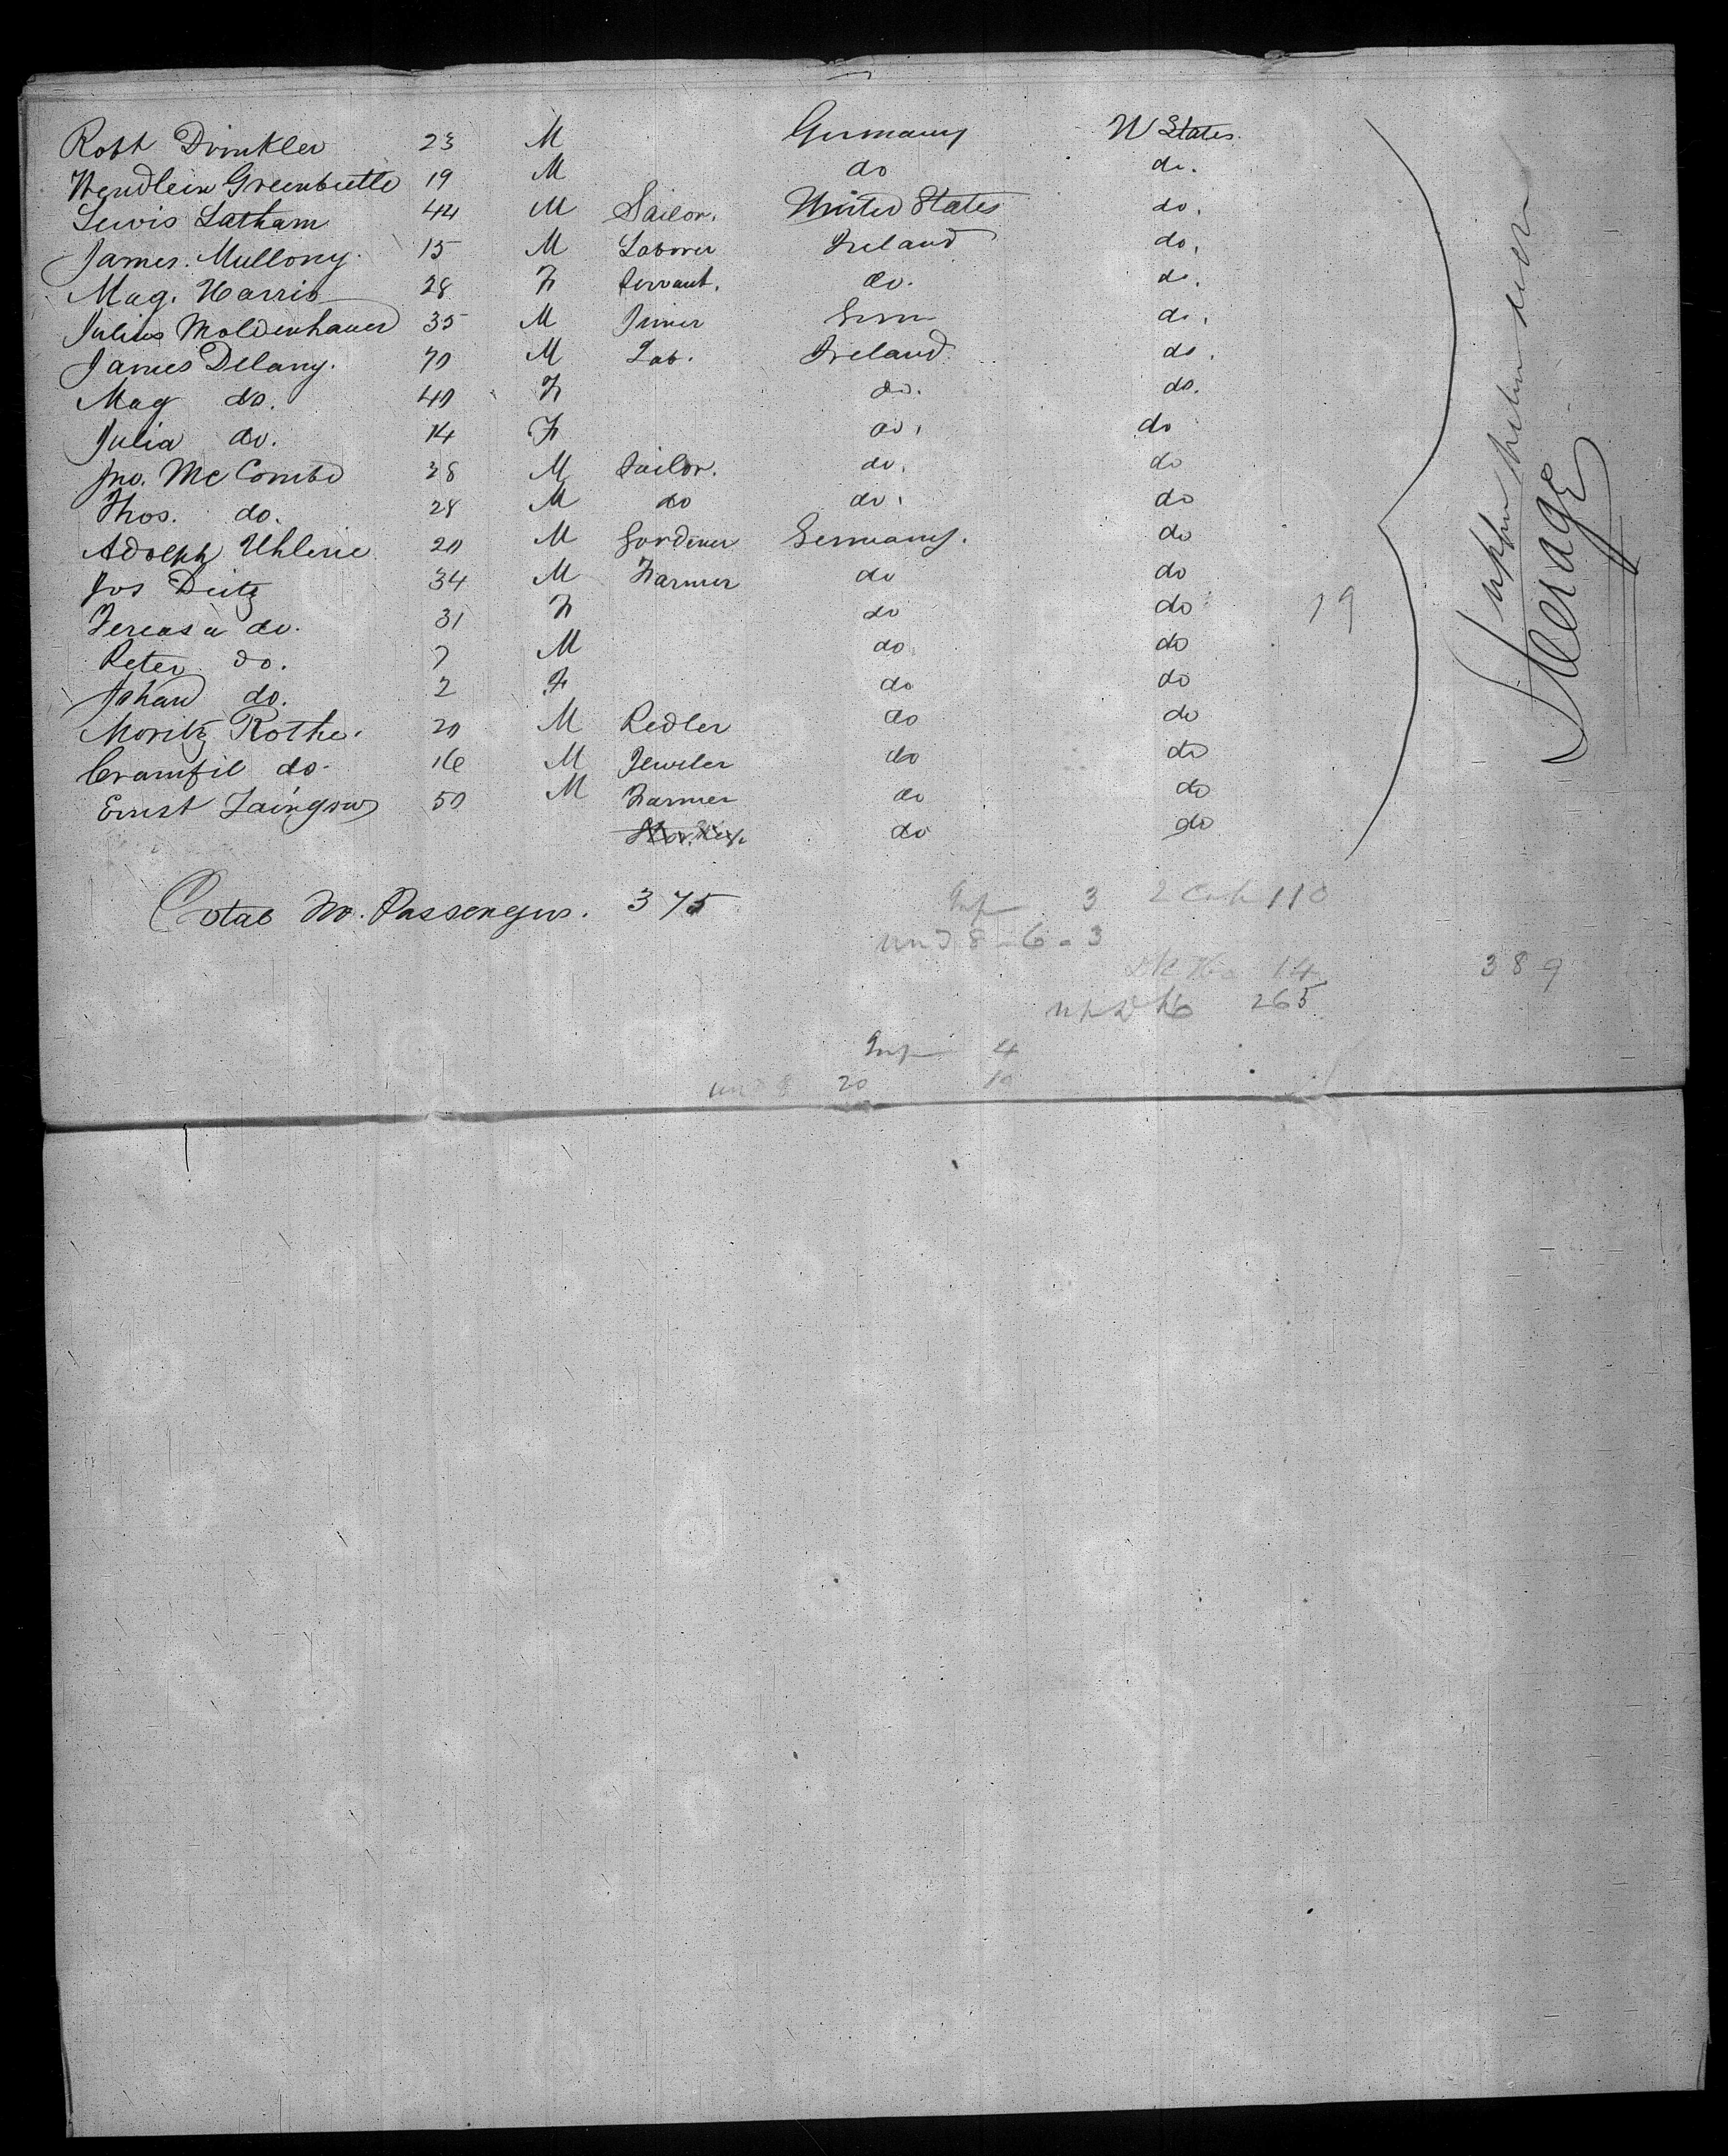 Robt Drinkler 23 M Germany U States
Wendlein Greenbuette 19 M do do.
Lewis Latham 44 M Sailor. United States do.
James. Mullony. 15 M Laborer Ireland do.
Mag. Harris 28 F Servant. do. do.
Julius Moldenhauer 35 M Joiner Germ do.
James Delany. 70 M Lab. Ireland do.
Mag do. 40 F do. do.
Julia do. 14 F do. do
Jno. McCombe 38 M Sailor. do. do
Thos. do. 28 M do do. do
Adolph Uhlerie 20 M Gardener Germany. do
Jos Deitz 34 M Farmer do do
Tereasa do. 31 F do do 19
Peter do. 7 M do do
Johan do. 2 F do do
Moritz Rothe. 20 M Pedler do do
do. 16 M Jeweler do do
Ernst 50 M Farmer do do
do do
Total No. Passengers. 375
Inf 3 110
und 8 - 6 - 3
14 389
265
Inf 4
und 8 20 10
Upper between decks
Steerage